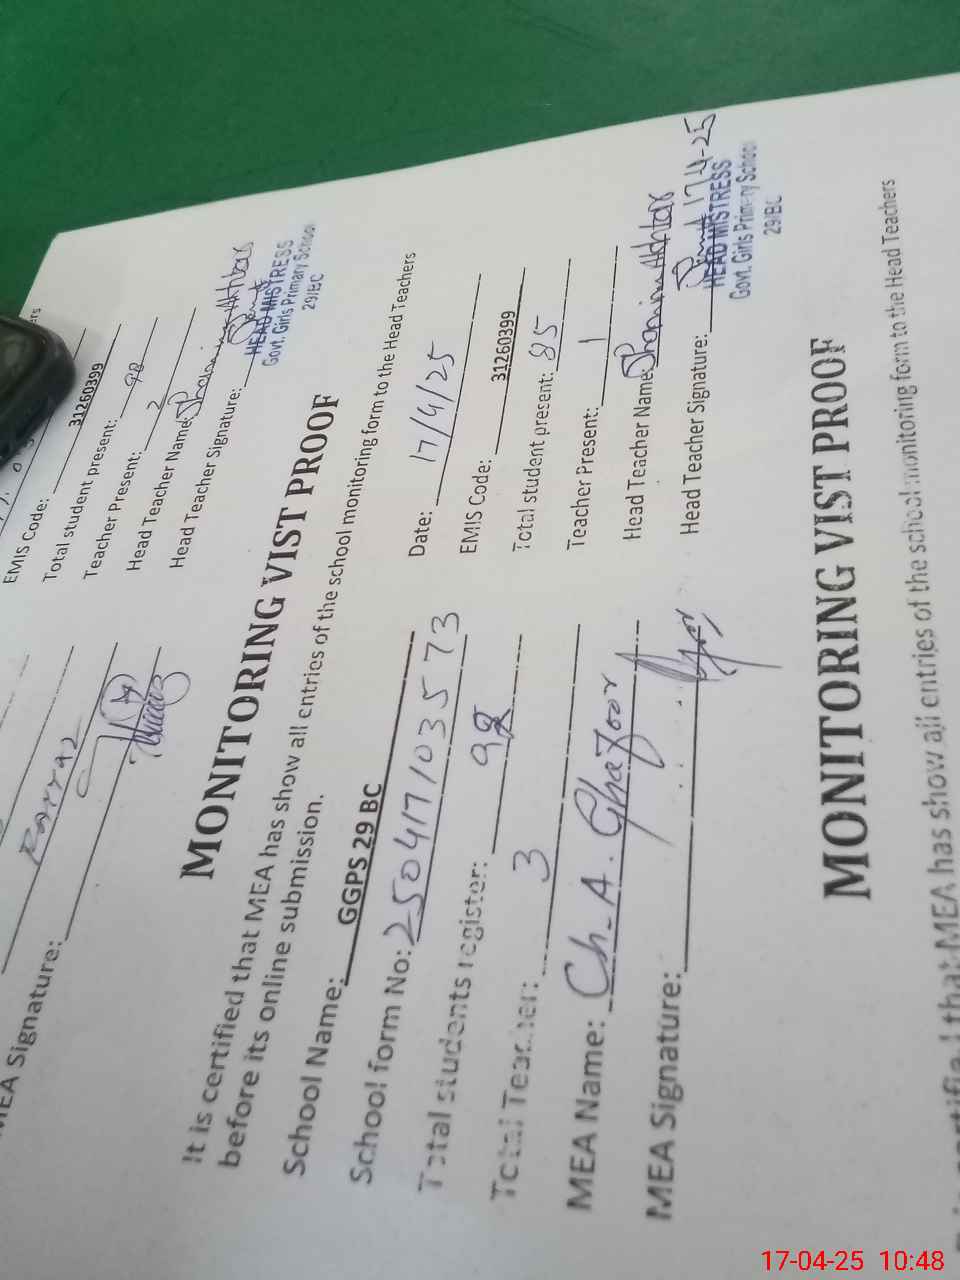 EMIS Code:
31260399
Total student present: 98
Teacher Present: 2
Head Teacher Name: Shamim Akhtar
Head Teacher Signature:
HEAD MISTRESS
Govt. Girls Primary School
29/BC
MEA Signature:
MONITORING VIST PROOF
It is certified that MEA has show all entries of the school monitoring form to the Head Teachers
before its online submission.
School Name: GGPS 29 BC
Date: 17/4/25
School form No: 250417103573
EMIS Code: 31260399
Total students register: 98
Total student present: 85
Total Teacher: 3
Teacher Present: 1
MEA Name: Ch. A. Ghafoor
Head Teacher Name: Shamim Akhtar
MEA Signature:
Head Teacher Signature: 17-4-25
HEAD MISTRESS
Govt. Girls Primary School
29/BC
MONITORING VIST PROOF
It is certified that MEA has show all entries of the school monitoring form to the Head Teachers
17-04-25 10:48